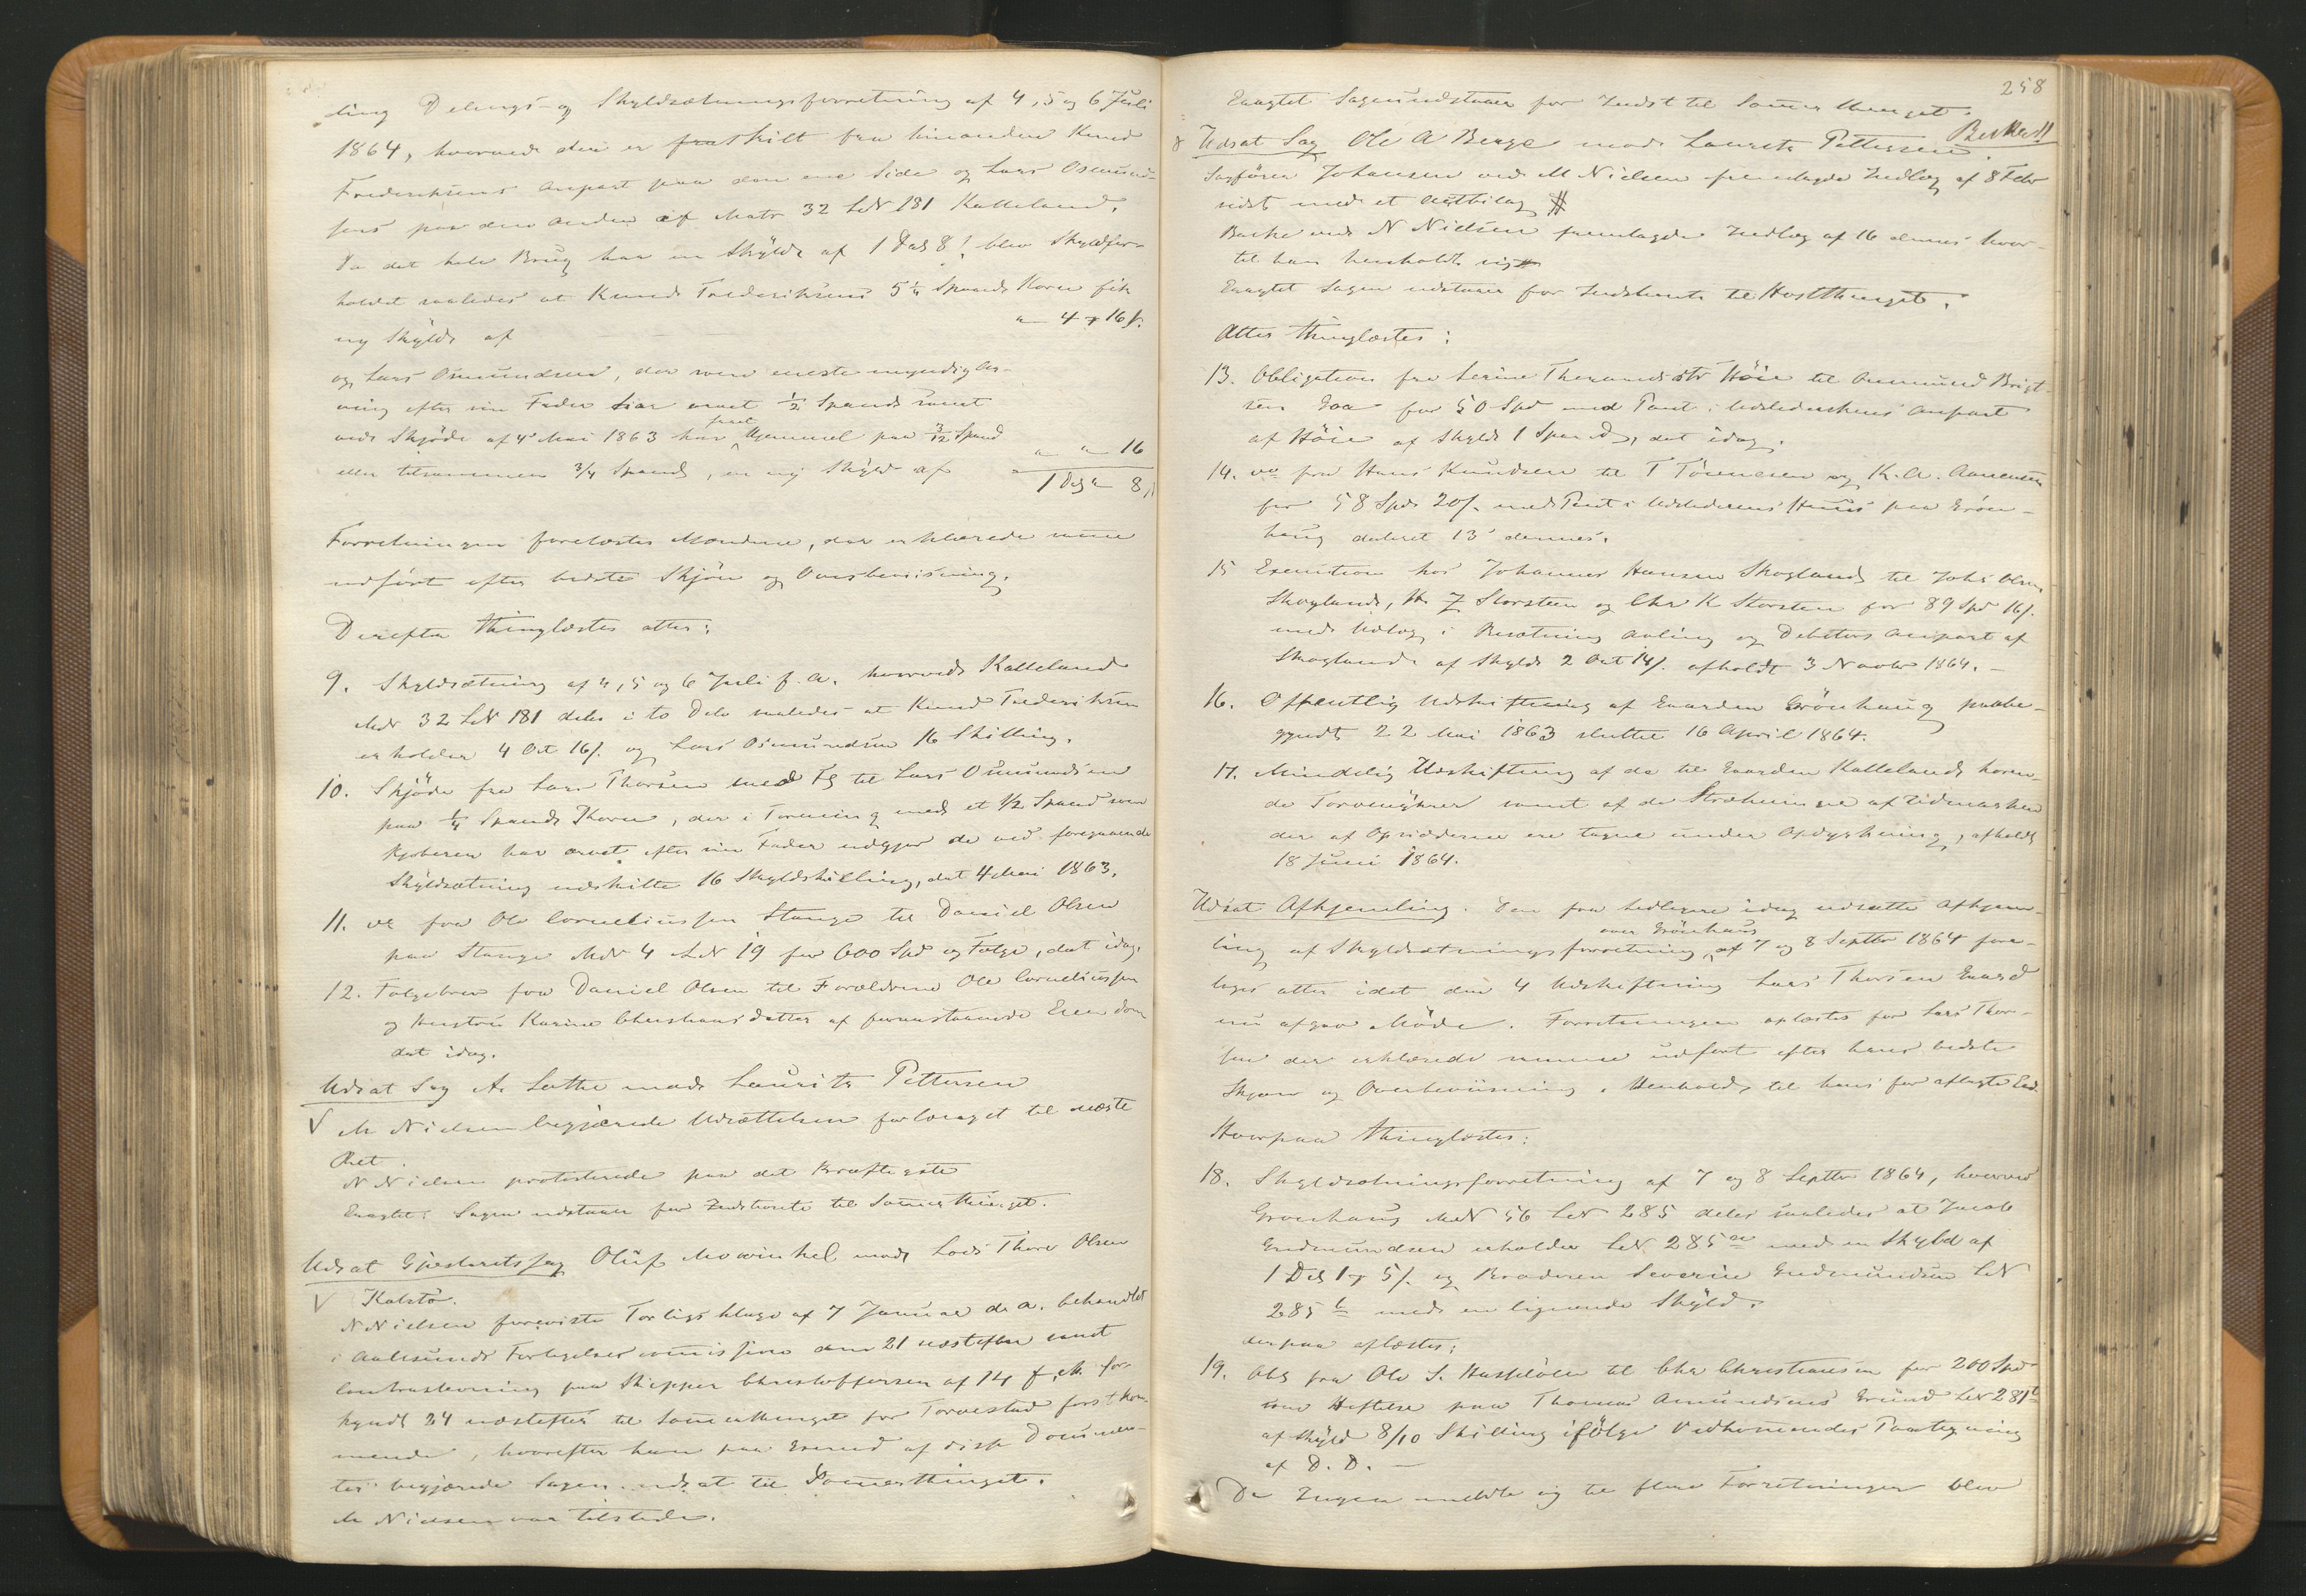 ling Delings- og Skyldsætningsforretning af 4, 5 og 6 Juli
1864, hvorved der er fraskilt fra hinanden Knud
Frederiksens Anpart paa den ene Side og Lars Osmund-
sens paa den anden af Matr 32 LN 181 Kalleland.
Da det hele Brug har en Skyld af 1 Dal 8 ! blev Skyldfor-
holdet saaledes at Knud Frederiksens 5 1/4 Spands Korn fik
ny Skyld af " 4 16 s.
og Lars Osmundsen, der som eneste myndig Ar-
ving efter sin Fader har arvet 1/2 Spands samt
ved Skjöde af 4 Mai 1863 har faaet Hjemmel paa 3/12 Spand
eller tilsammen 3/4 Spand, en ny Skyld af " " 16
1 Dal " 8
Forretningen forelæstes Mændene, der erklærede samme
udfört efter bedste Skjön og Overbeviisning.
Derefter thinglæstes atter:
9. Skyldsætning af 4, 5 og 6 Juli f. A. hvorved Kalleland
MN 32 LN 181 deles i to Dele saaledes at Knud Frederiksen
erholder 4 Ort 16 s. og Lars Osmundsen 16 Skilling.
10. Skjöde fra Lars Thorsen med Fl til Lars Osmundsen
paa 1/4 Spands Korn, der i Forening med et 1/2 Spand som
Kjøberen har arvet efter sin Fader udgjør de ved foregaaende
Skyldsætning udskilte 16 Skyldskilling, dat 4 Mai 1863.
11. do fra Ole Corneliussen Stange til Daniel Olsen
paa Stange MN 4 LN 19 for 600 Spd og Følge, dat idag.
12. Følgebrev fra Daniel Olsen til Forældrene Ole Corneliussen
og Hustru Karine Christiansdatter af foranstaaende Eiendom
dat idag.
Udsat Sag A. Lothe mod Laurits Pettersen
V M Nielsen begjærede Udsættelsen forlænget til næste
Ret.
N Nielsen protesterede paa det Kraftigste
Eragtet: Sagen udstaaer for Indstevnte til Sommerthinget.
Udsat Gjesteretssag Oluf Mowinkel mod Lods Thore Olsen
V Kalstö.
N Nielsen foreviste Forligsklage af 7 Januar d. A. behandlet
i Aakesunds Forligelsescommission den 21 næstefter samt
Contrastevning paa Skipper Christoffersen af 14 f. M. for-
kyndt 24 næstefter til Sommerthinget for Torvestad forstkom-
mende, hvorefter han paa Grund af disse Documen-
ter begjærede Sagen udsat til Sommerthinget.
M Nielsen var tilstede.
258
Eragtet Sagen udstaaer for Indst til Sommerthinget.
Udsat Sag Ole A Berge mod Laurits Pettersen. Besked!!
Sagförer Johansen ved M Nielsen fremlagde Indlæg af 8 Febr
sidst med et Actbilag #
Bache ved N Nielsen fremlagde Indlæg af 16 dennes hvor-
til han henholdt sig
Eragtet Sagen udstaaer for Indstevnte til Høstthinget.
Atter thinglæstes:
13. Obligation fra Serine Thorsandsdtr Höie til Osmund Brigt-
sen Gaa for 50 Spd med Pant i Udstederskens Anpart
af Höie af Skyld 1 Spand, dat idag.
14. do fra Hans Knudsen til T Tönnesen og K. A. Aanensen
for 58 Spd 20 s. med Pant i Udstederens Huus paa Grön-
haug dateret 13 dennes.
15 Execution hos Johannes Hansen Skogland til Johs Olsen
Skogland, H. J Storsteen og Chr K Storsteen for 89 Spd 16 s.
med Udlæg i Besætning Avling og Debitors Anpart af
Skogland af Skyld 2 Ort 14 s. afholdt 3 Novbr 1864. –
16. Offentlig Udskiftning af Gaarden Grönhaug paabe-
gyndt 22 Mai 1863 sluttet 16 April 1864.
17. Mindelig Udskiftning af de til Gaarden Kalleland høren-
de Torvemyrer samt af de Strækninger af Udmarken
der af Opsidderne ere tagne under Opdyrkning, afholdt
18 Juni 1864.
Udsat Afhjemling. Den fra tidligere idag udsatte Afhjem-
ling af Skyldsætningsforretning over Grönhaug af 7 og 8 Septbr 1864 fore-
toges atter idet den 4 Udskiftning Lars Thorsen Gaard
nu afgav Møde. Forretningen oplæstes for Lars Thor-
sen der erklærede samme udfört efter hans bedste
Skjøn og Overbeviisning. Henholdt til hans før aflagte Eed.
Hvorpaa thinglæstes:
18. Skyldsætningsforretning af 7 og 8 Septbr 1864, hvorved
Grønhaug MN 56 LN 285 deles saaledes at Jacob
Gudmundsen erholder LN 285 a med en Skyld af
1 Dal 1 5 s. og Broderen Severin Gudmundsen LN
285 b med en lignende Skyld.
derpaa aflæstes:
19. Obl fra Ole S. Hasselöen til Chr Christiansen for 200 Spd
som Heftelse paa Thomas Amundsens Grund LN 281 b
af Skyld 8/10 Skilling ifölge Vedkommendes Paategning
af D. D. –
Da Ingen meldte sig til flere Forretninger blev